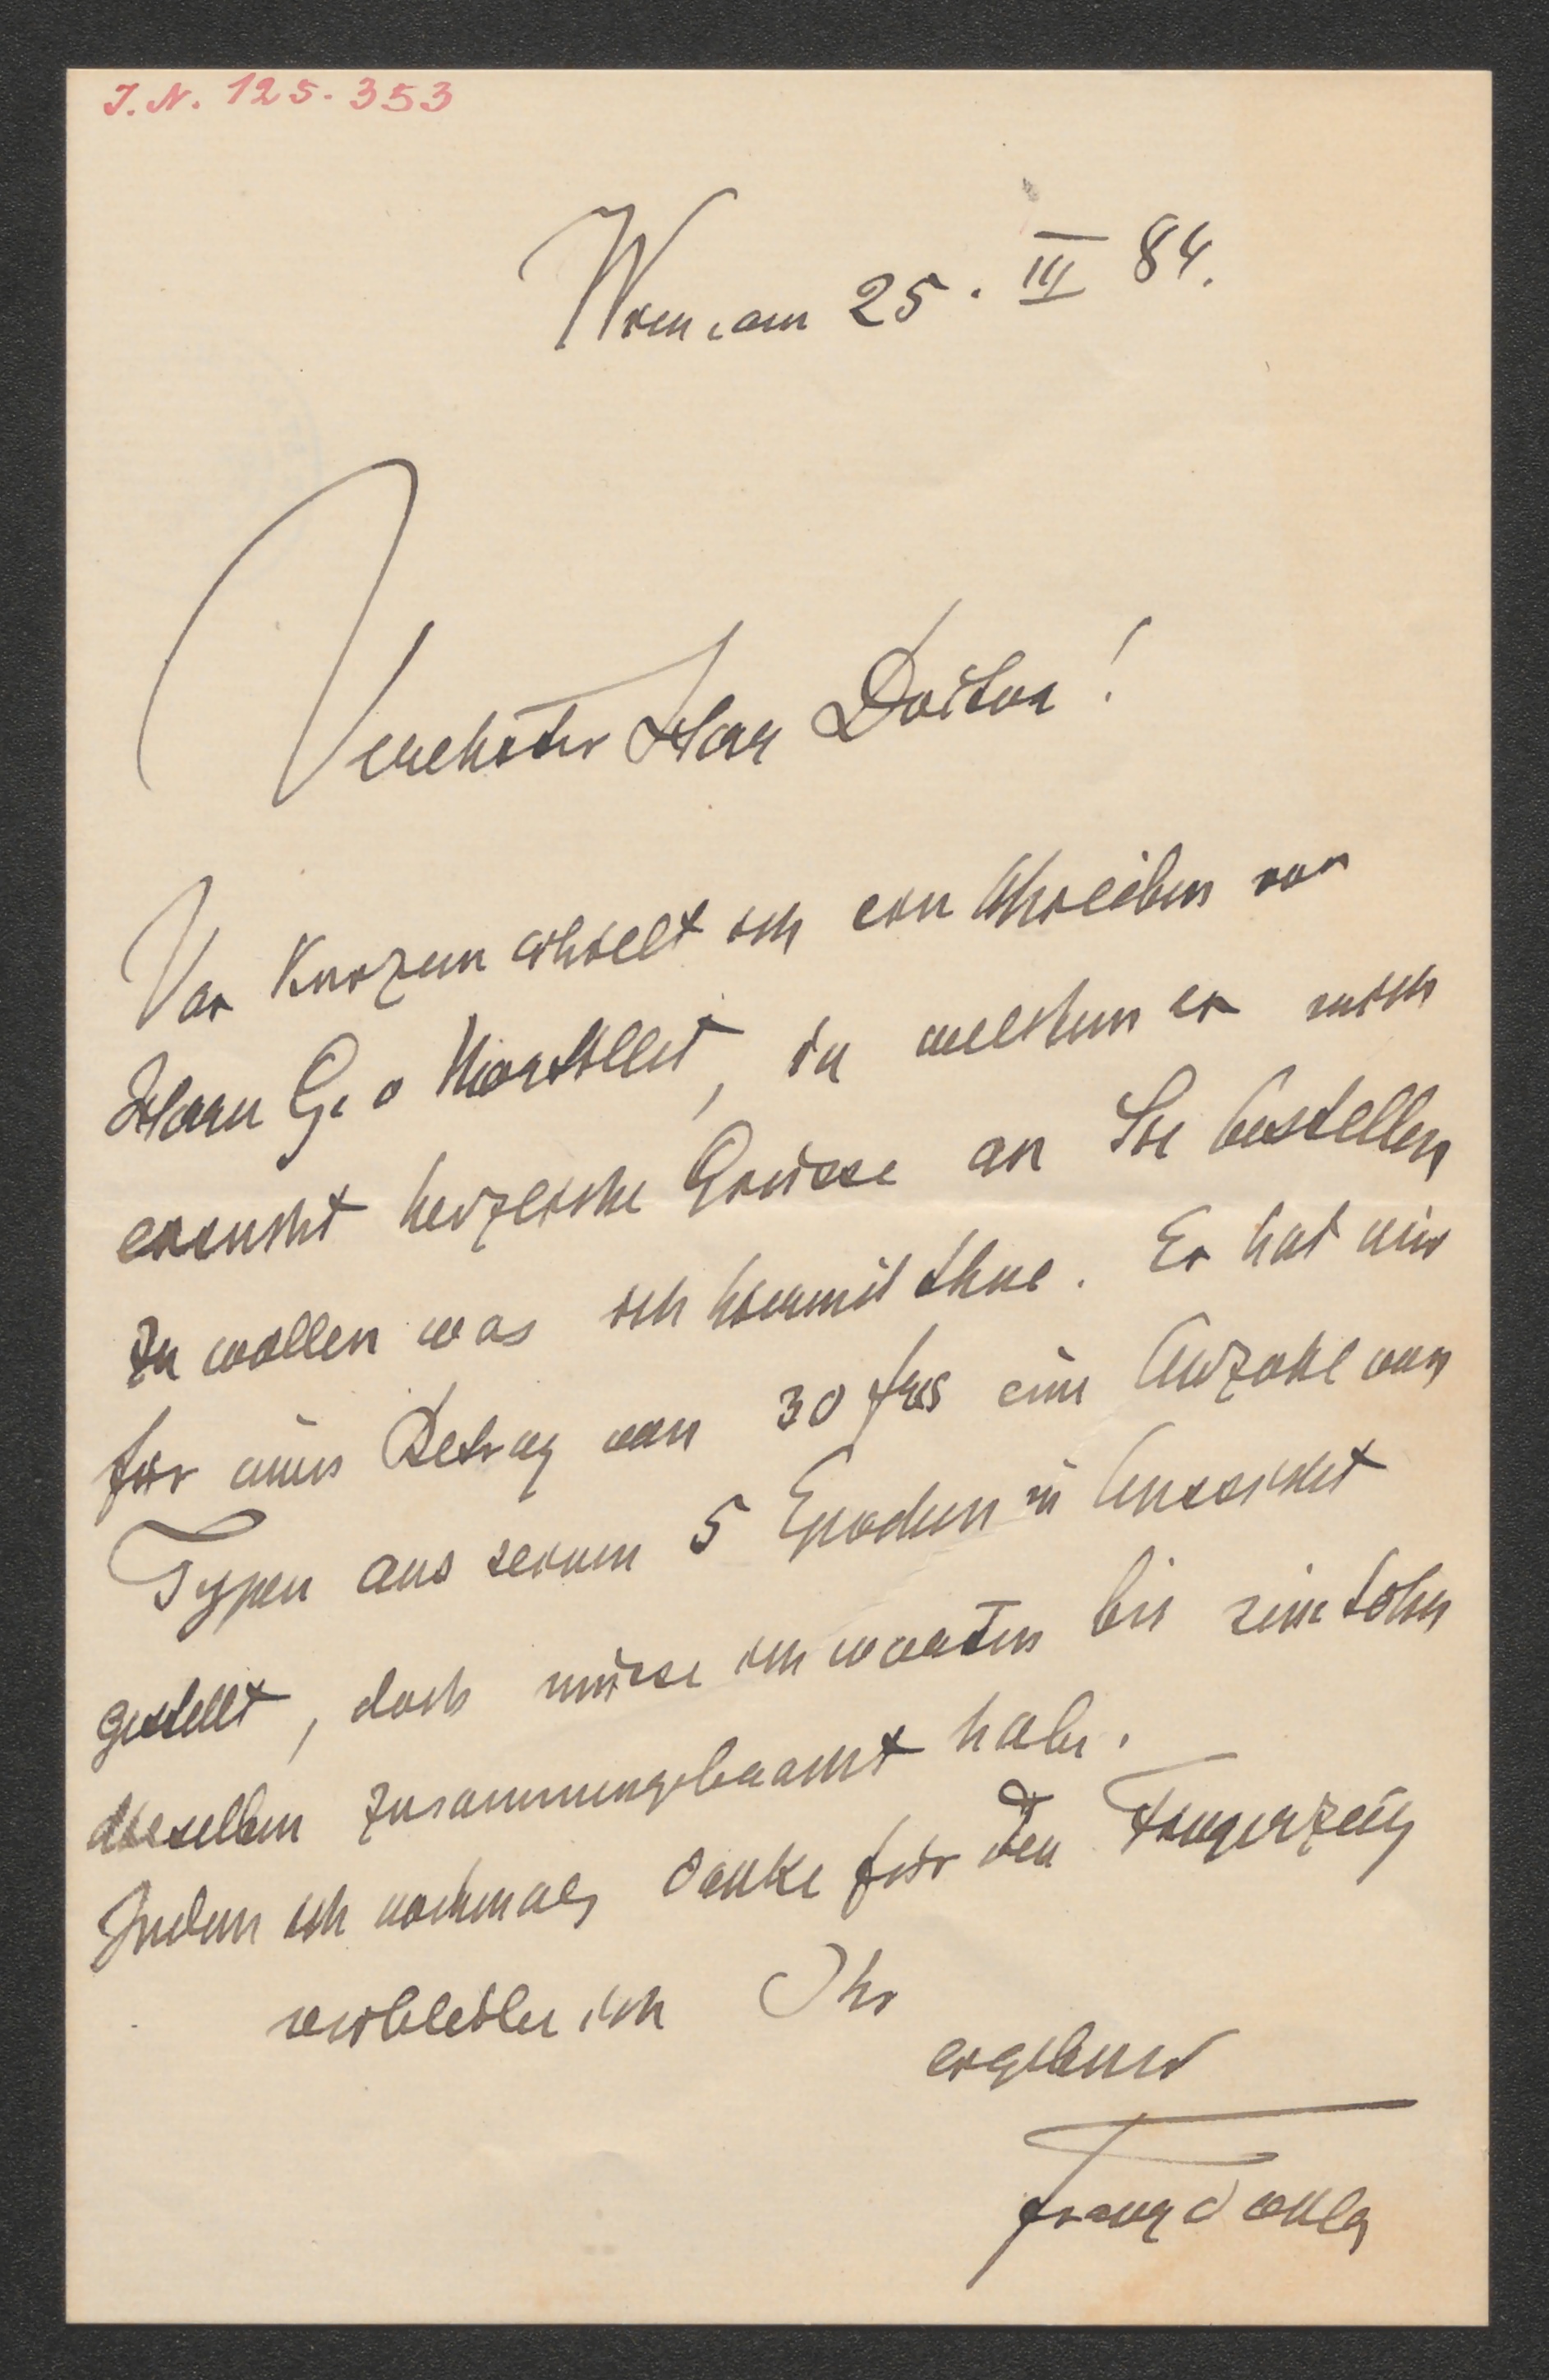 J. N. 125.353
Wien, am 25. III 84.
Verehrter Herr Doctor!
Vor Kurzem erhielt ich ein Schreiben von
Herrn G. v Mortillet, in welchem er mich
ersucht herzliche Grüsse an Sie bestellen
zu wollen was ich hiermit thue. Er hat mir
für einen Betrag von 30 frcs eine Anzahl von
Typen aus seinen 5 Epochen in Aussicht
gestellt, doch müsse ich warten bis sein Sohn
dieselben zusammengebracht habe.
Indem ich nochmals danke für den Fingerzeig
verbleibe ich Ihr
ergebener
Franz